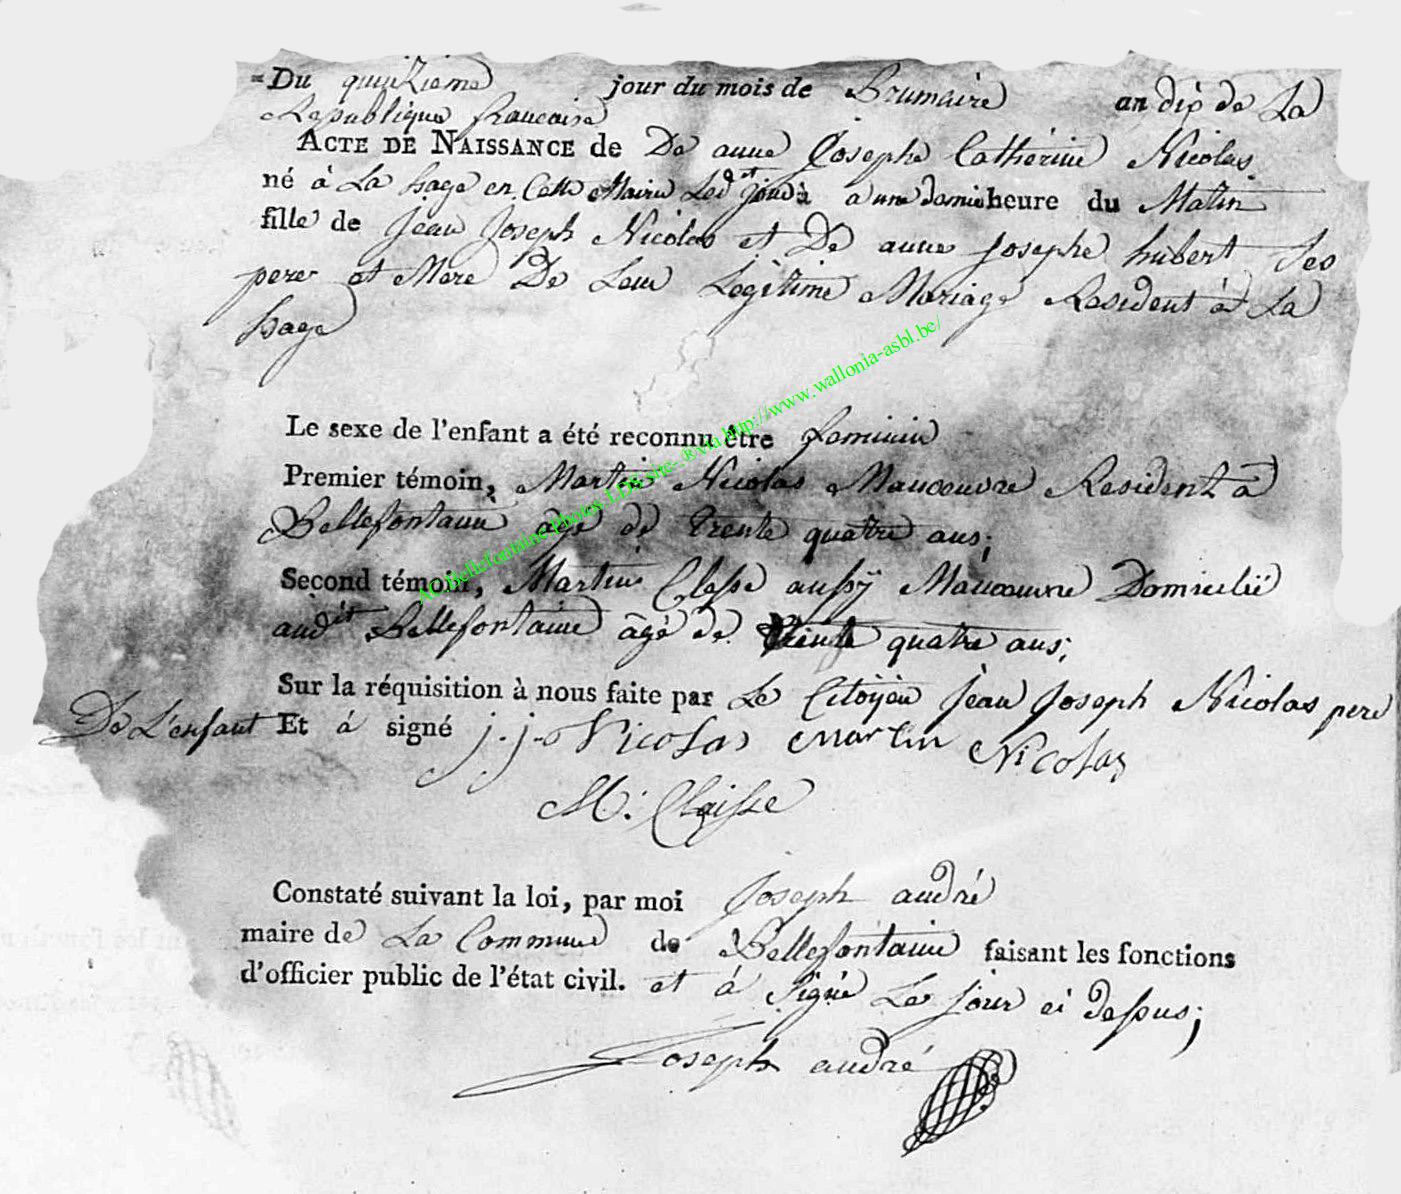 Du quinzieme jour du mois de Brumaire an dix de La
Republique francaise
ACTE DE NAISSANCE de De anne Josephe Catherine Nicolas.
né à La hage en Cette Mairie Led.t jour à a une demie heure du Matin
fille de Jean Joseph Nicolas et De anne Josephe hubert Ses
pere et Mere De Leur Légitime Mariage Resident à La
hage
Le sexe de l'enfant a été reconnu être feminin
Premier témoin, Martin Nicolas Manoeuvre Resident a
Bellefontaine âgé de trente quattre ans;
Second témoin, Martin Clesse aussÿ Manoeuvre Domicilié
aud.it Bellefontaine âgé de trente quatre ans;
Sur la réquisition à nous faite par Le Citoÿen Jean Joseph Nicolas pere
De L'enfant Et á signé j. j. Nicolas Martin Nicolas
M. Claisse
Constaté suivant la loi, par moi Joseph andré
maire de La Commune de Bellefontaine faisant les fonctions
d'officier public de l'état civil. et á Signé Le jour ci dessus;
Joseph andré
Bellefontaine.Photos.LDS.site-.®via http://www.wallonia-asbl.be/